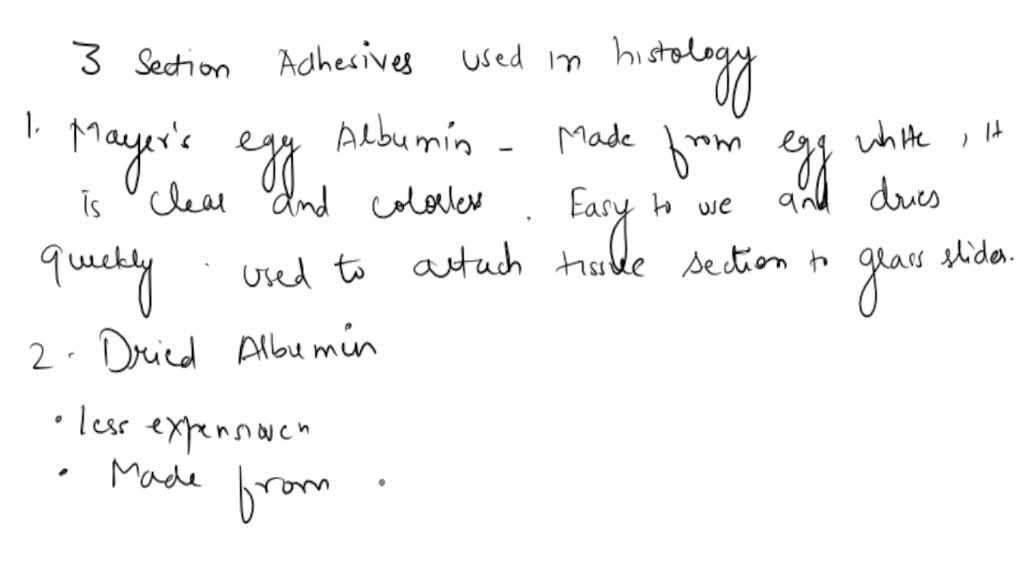 3 Section Adhesives used in histology
1. Mayer's egg Albumin - Made from egg white, it
is clear and colorless. Easy to use and dries
quickly. used to attach tissue section to glass slides.
2. Dried Albumin
• less expensive
• Made from